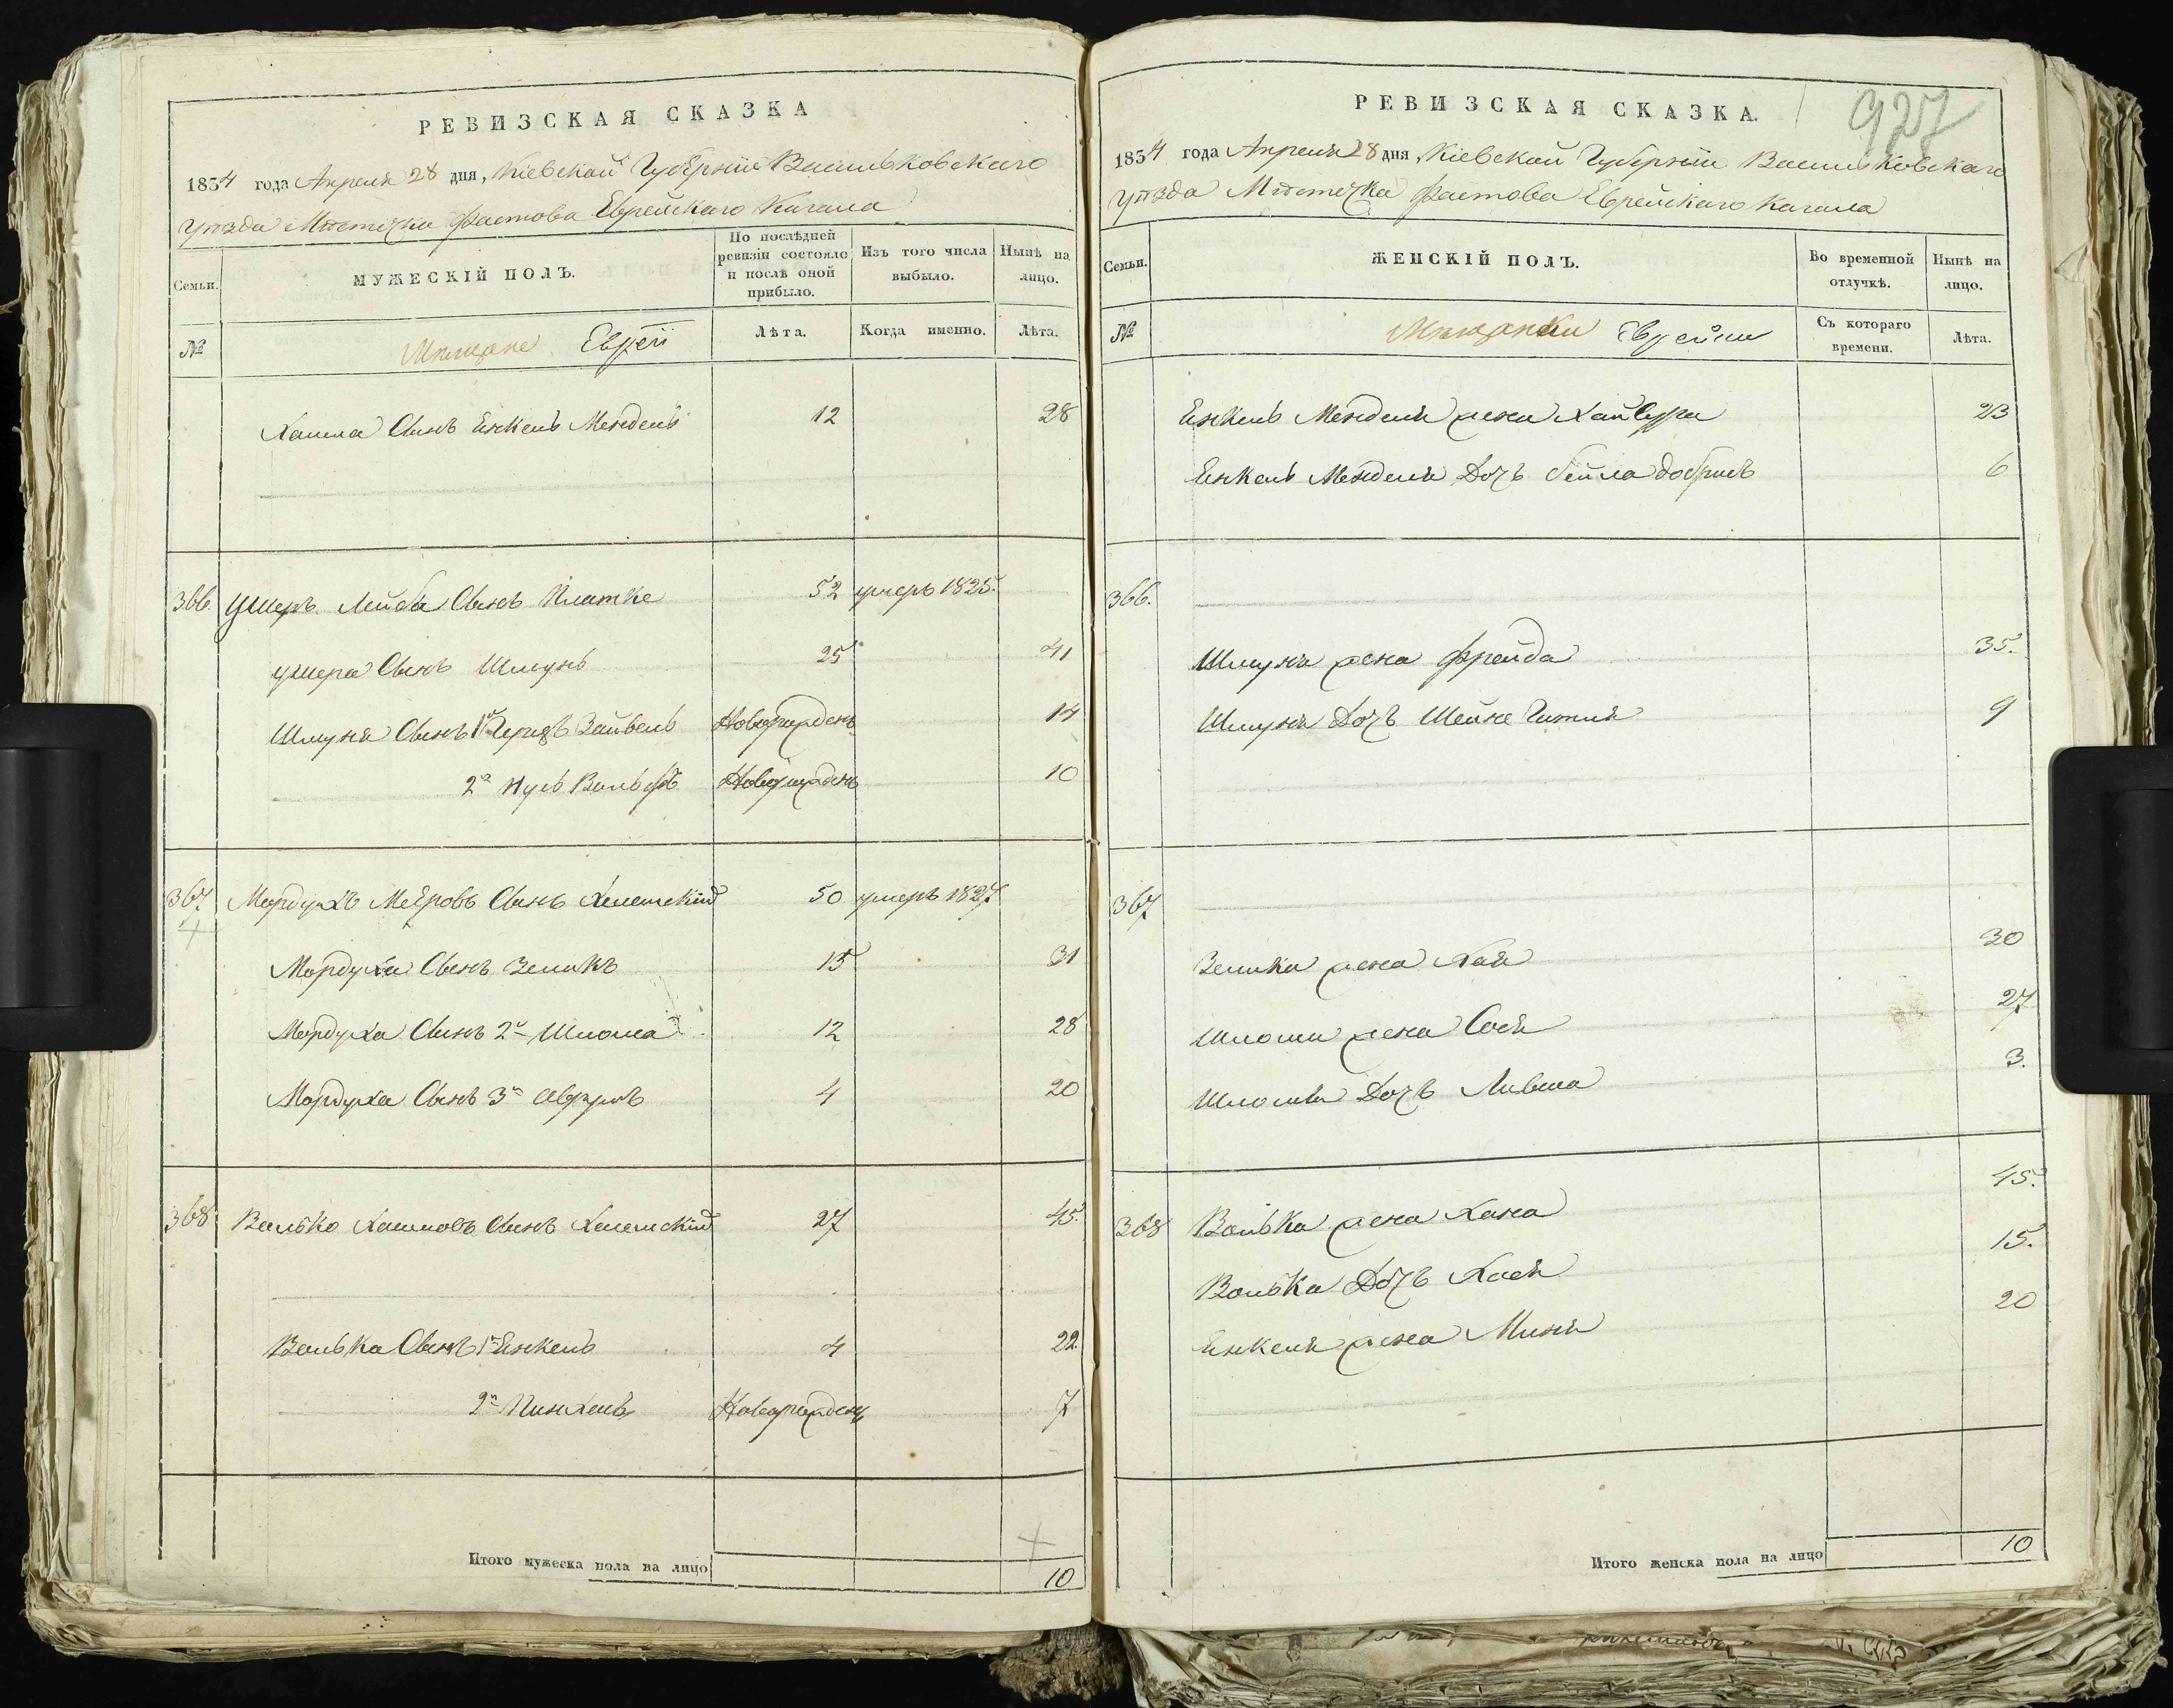 РЕВИЗСКАЯ СКАЗКА
1834 года Апреля 28 дня, Кіевской Губерніи Васильковскаго
уѣзда Мѣстечка Фастова Еврейскаго Кагала
Семьи.
МУЖЕСКІЙ ПОЛЪ.
По послѣдней ревизіи состояло и послѣ оной прибыло.
Изъ того числа выбыло.
Нынѣ на лицо.
№
Мѣщане Евреи
Лѣта.
Когда именно.
Лѣта.
Хаима Сынъ Енкель Мендель 12 28
366. Ушеръ Лейба Сынъ Платке 52 умеръ 1825.
Ушера Сынъ Шмунь 25 41
Шмуня Сынъ 1й Зайвель Новорожденъ 14
2й Вольфъ Новорожденъ 10
367. Мордухъ Меёровъ Сынъ 50 умеръ 1827
Мордуха Сынъ Зеликъ 15 31
Мордуха Сынъ 2й Шлома 12 28
Мордуха Сынъ 3й 4 20
368. Волько Хаимовъ Сынъ 27 45.
Волька Сынъ 1й Енкель 4 22.
2й Пинхель Новорожденъ 7
Итого мужеска пола на лицо 10
РЕВИЗСКАЯ СКАЗКА.
927
1834 года Апреля 28 дня, Кіевской Губерніи Васильковскаго
уѣзда Мѣстечка Фастова Еврейскаго Кагала
Семьи.
ЖЕНСКІЙ ПОЛЪ.
Во временной отлучкѣ.
Нынѣ на лицо.
№
Мѣщанки Еврейки
Съ котораго времени.
Лѣта.
Енкель Менделя жена 23
Енкель Менделя Дочь Бейла Добришъ 6
366.
Шмуня жена Фрейда 35.
Шмуня Дочь Шейне Гитля 9
367
Зелика жена Хая 30
Шломы жена Сося 27
Шломы Дочь Ливша 3.
368 Волька жена Хана 45.
Волька Дочь Хася 15.
Енкеля жена Миня 20
Итого женска пола на лицо 10